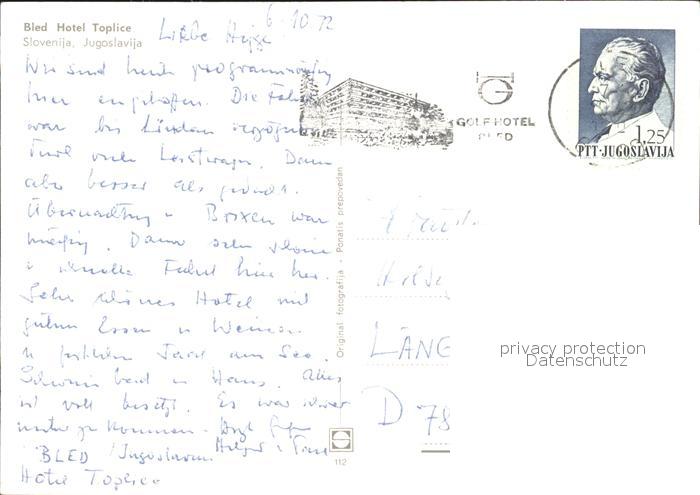 Bled Hotel Toplice
Slovenija, Jugoslavija
6.10.72
Liebe
Wir sind heute programmäßig
hier eingetroffen. Die Fahrt
war bis Lindau
viele Lastwagen. Dann
aber besser als
Übernachtung in Brixen war
mäßig. Dann sehr schöne
u. schnelle Fahrt hier her.
Sehr schönes Hotel mit
gutem Essen u. Weinen
u. am See.
Schwimmbad im Haus. Alles
ist voll besetzt. Es war schwer
zu kommen.
BLED / Jugoslawien
Hotel Toplice
Original fotografija - Ponatis prepovedan
112
GOLF HOTEL
BLED
1,25
PTT·JUGOSLAVIJA
LÄNG
D 78
privacy protection
Datenschutz